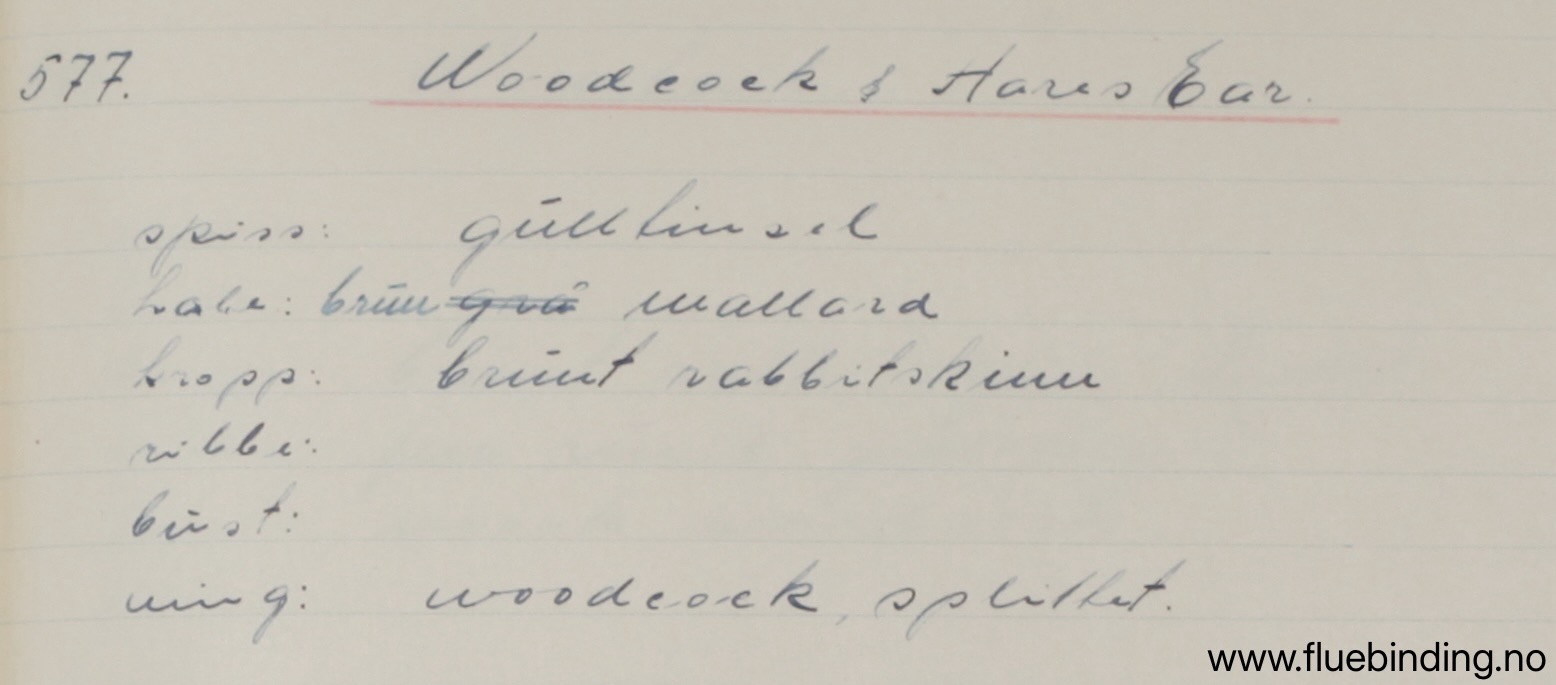 577. Woodcock & Hares Ear.
spiss: gulltinsel
hale: brun grå mallard
kropp: brunt rabbitskinn
ribbe:
bust:
ving: woodcock, splittet.
www.fluebinding.no